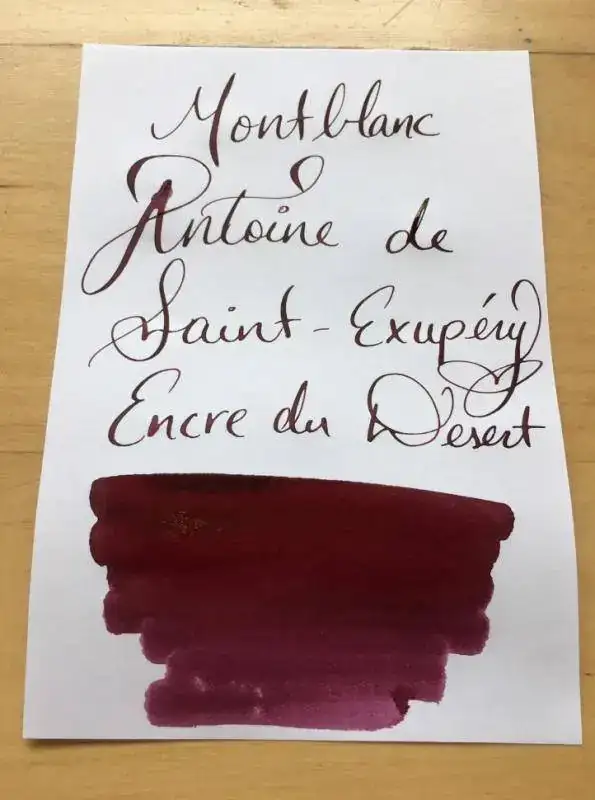 Montblanc
Antoine de
Saint-Exupéry
Encre du Désert